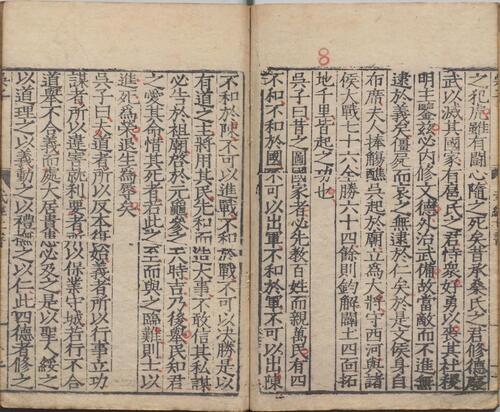 8
之犯虎雖有鬪心隨之死矣昔承桑氏之君修德廢
武以滅其國家有扈氏之君恃衆好勇以喪其社稷
明主鑒茲必內修文德外治武備故當敵而不進無
逮於義矣僵屍而哀之無逮於仁矣於是文侯身自
布席夫人捧觴醮吳起於廟立爲大將守西河與諸
侯大戰七十六全勝六十四餘則鈞解闢土四面拓
地千里皆起之功也
吳子曰昔之圖國家者必先敎百姓而親萬民有四
不和不和於國不可以出軍不和於軍不可以出陳
不和於陳不可以進戰不和於戰不可以決勝是以
有道之主將用其民先和而造大事不敢信其私謀
必告於祖廟啓於元龜參之天時吉乃後擧民知君
之愛其命惜其死若此之至而與之臨難則士以
進死爲榮退生爲辱矣
吳子曰夫道者所以反本復始義者所以行事立功
謀者所以違害就利要者所以保業守城若行不合
道擧不合義而處大居貴患必及之是以聖人綏之
以道理之以義動之以禮撫之以仁此四德者修之